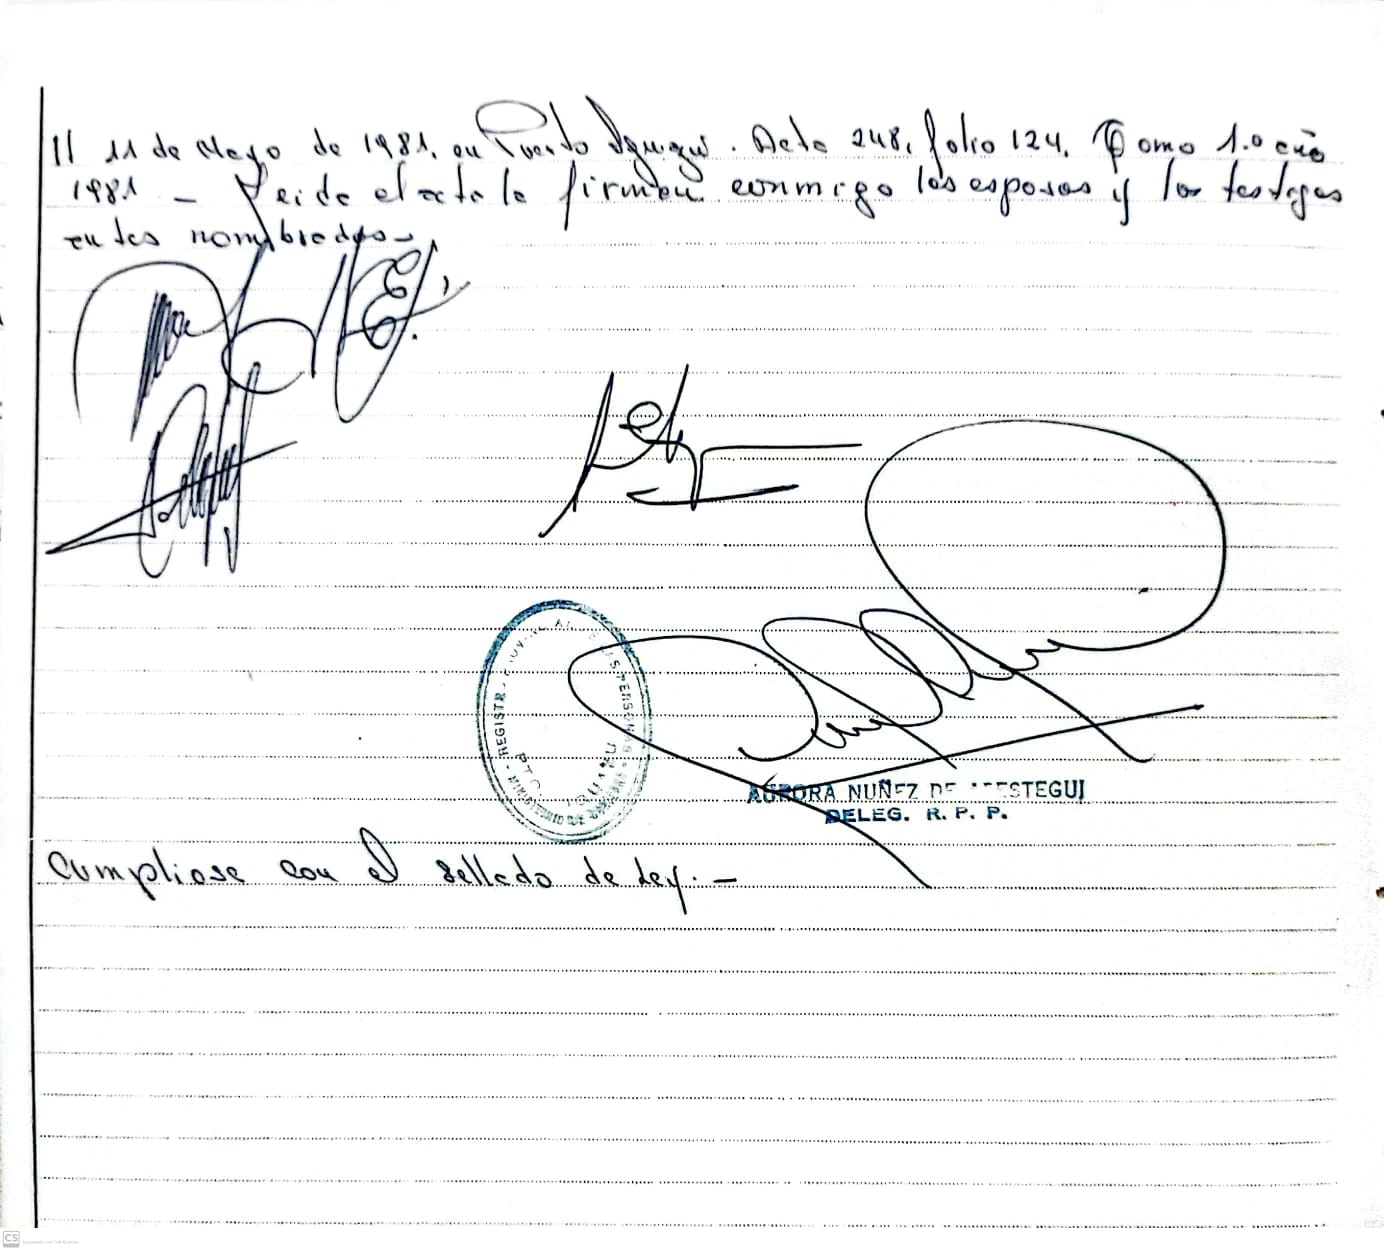 11 de Mayo de 1981. en Puerto Iguazú. Acta 248, folio 124, Tomo 1.º año
1981 — Leida el acta la firman conmigo los esposos y los testigos
antes nombrados—
REGISTR
PTO. IGUAZU
MINISTERIO DE
AURORA NUÑEZ DE
DELEG. R. P. P.
Cumpliose con el sellado de Ley. —
CS